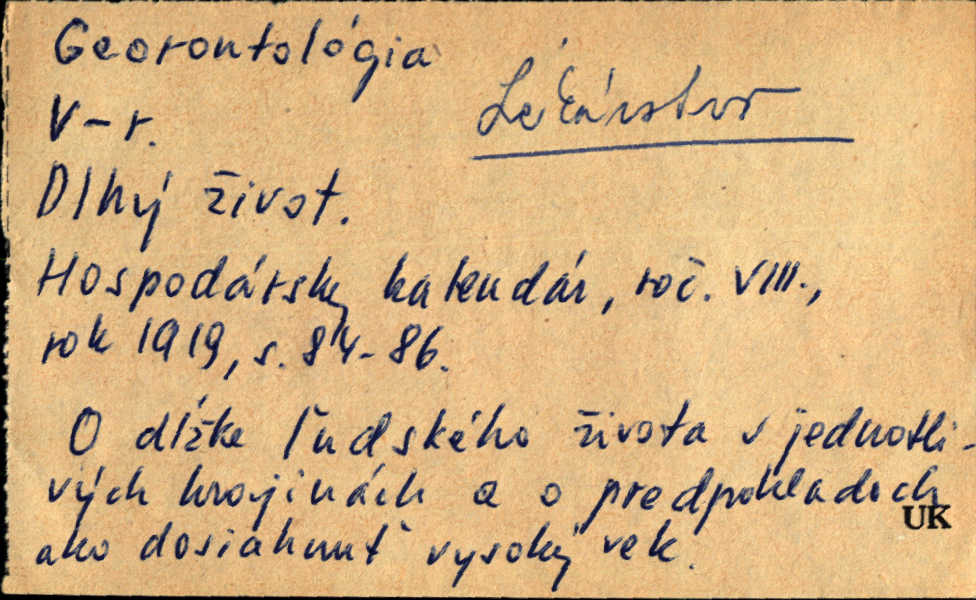 Georontológia
Lekárstvo
V-r.
Dlhý život.
Hospodársky kalendár, roč. VIII.,
rok 1919, s. 84-86.
O dĺžke ľudského života v jednotli-
vých krajinách a o predpokladoch
UK
ako dosiahnuť vysoký vek.